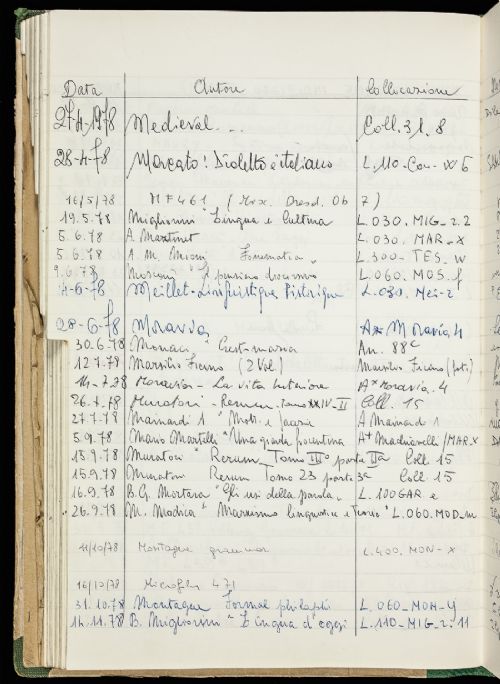 Data Autore Collocazione
27-4-1978 Medieval... Coll. 31. 8
28-4-78 Mercato: Dialetto e italiano L.110-Con-
16/5/78 MF461 (Dresd. Ob 7)
19.5.78 Migliorini "Lingua e Cultura L.030. MIG-2.2
5.6.78 A. Martinet L.030. MAR-X
5.6.78 A. M. Mioni Fonematica" L.300-TES. W
9.6.78 "Il pensiero discorsivo L.060. MOS. f
-6-78 Meillet-Linguistique historique L.030. Mei-2
28-6-78 Moravia A* Moravia 4
30.6.78 Monaci "Crest-mazia An. 88c
12.7.78 Marsilio Ficino (2 Vol.) Marsilio Ficino
14-7-78 Moravia - La vita interiore A* Moravia. 4
26.7.78 Muratori - Rerum. Tomo XXIV-II Coll. 15
27.7.78 Mainardi A Mainardi 1
5.9.78 Mario Martelli "Una giarda fiorentina A* Machiavelli/MAR.X
13.9.78 Muratori "Rerum Tomo III° parte IIa Coll. 15
15.9.78 Muratori Rerum Tomo 23 parte 3a Coll. 15
16.9.78 B.G. Mortara "Gli usi della parola" L.100GAR e
26.9.78 M. Modica "Marxismo linguistica e Teoria" L.060.MOD-m
11/10/78 Montague grammar L.400. MON-X
16/10/78 Microfilm 471
31.10.78 Montague Formal philophi L.060-MON-4
14.11.78 B. Migliorini "Lingua d'oggi L.110-MIG-2.11